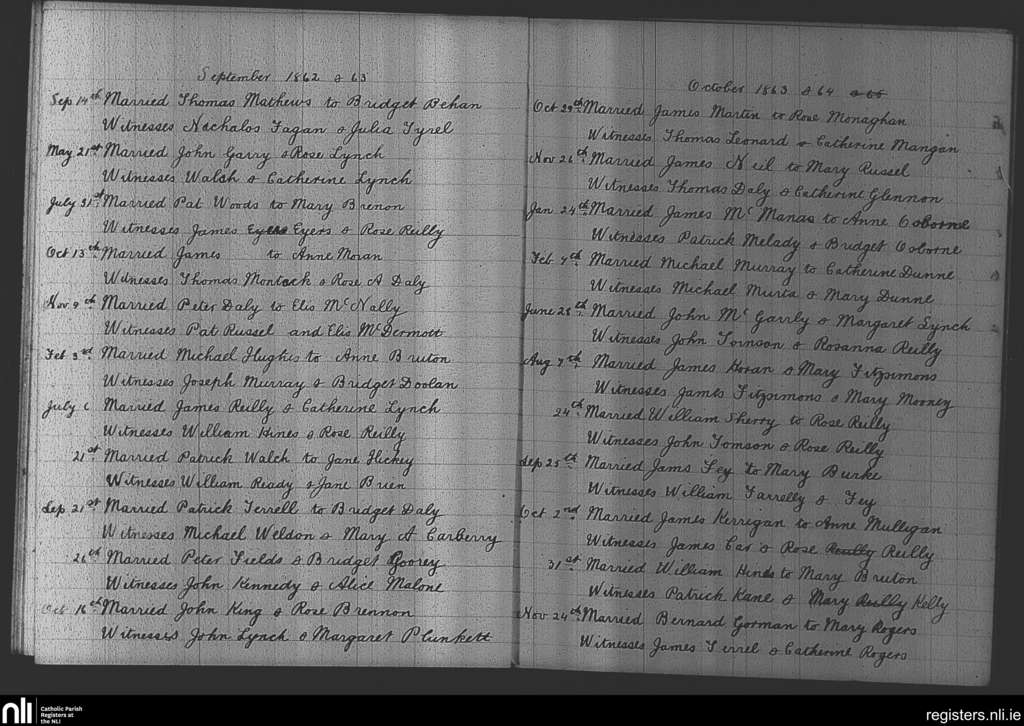 September 1862 & 63
Sep 14th Married Thomas Mathews to Bridget Behan
Witnesses Nachalos Fagan & Julia Tyrel
May 21st Married John Garry & Rose Lynch
Witnesses Walsh & Catherine Lynch
July 31st Married Pat Woods to Mary Brenon
Witnesses James Eyers Eyers & Rose Reilly
Oct 13th Married James to Anne Moran
Witnesses Thomas Montack & Rose A Daly
Nov. 9th Married Peter Daly to Elis McNally
Witnesses Pat Russel and Elis McDermott
Feb 3rd Married Michael Hughis to Anne Bruton
Witnesses Joseph Murray & Bridget Doolan
July 6 Married James Reilly & Catherine Lynch
Witnesses William Hines & Rose Reilly
21st Married Patrick Walch to Jane Hickey
Witnesses William Ready & Jane Brien
Sep 21st Married Patrick Terrell to Bridget Daly
Witnesses Michael Weldon & Mary A Carberry
26th Married Peter Fields & Bridget Goorey
Witnesses John Kennedy & Alice Malone
Oct 16th Married John King & Rose Brennon
Witnesses John Lynch & Margaret Plunkett
October 1863 & 64 & 65
Oct 29th Married James Martin to Rose Monaghan
Witnesses Thomas Leonard & Catherine Mangan
Nov 26th Married James Neil to Mary Russel
Witnesses Thomas Daly & Catherine Glennon
Jan 24th Married James Mc Manas to Anne Osborne
Witnesses Patrick Melady & Bridget Osborne
Feb 7th Married Michael Murray to Catherine Dunne
Witnesses Michael Murta & Mary Dunne
June 28th Married John Mc Garrly & Margaret Lynch
Witnesses John Tomson & Rosanna Reilly
Aug 7th Married James Horan & Mary Fitzsimons
Witnesses James Fitzsimons & Mary Mooney
24th Married William Sherry to Rose Reilly
Witnesses John Tomson & Rose Reilly
Sep 25th Married Jams Fey to Mary Burke
Witnesses William Farrelly & Fey
Oct 2nd Married James Kerrigan to Anne Mulligan
Witnesses James Car & Rose Reully Reilly
31st Married William Hinds to Mary Bruton
Witnesses Patrick Kane & Mary Reilly Kelly
Nov 24th Married Bernard Gorman to Mary Rogers
Witnesses James Tirrel & Catherine Rogers
nli
Catholic Parish
Registers at
the NLI
registers.nli.ie